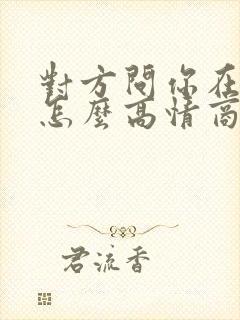 對方問你在
怎麼高情商
君流香